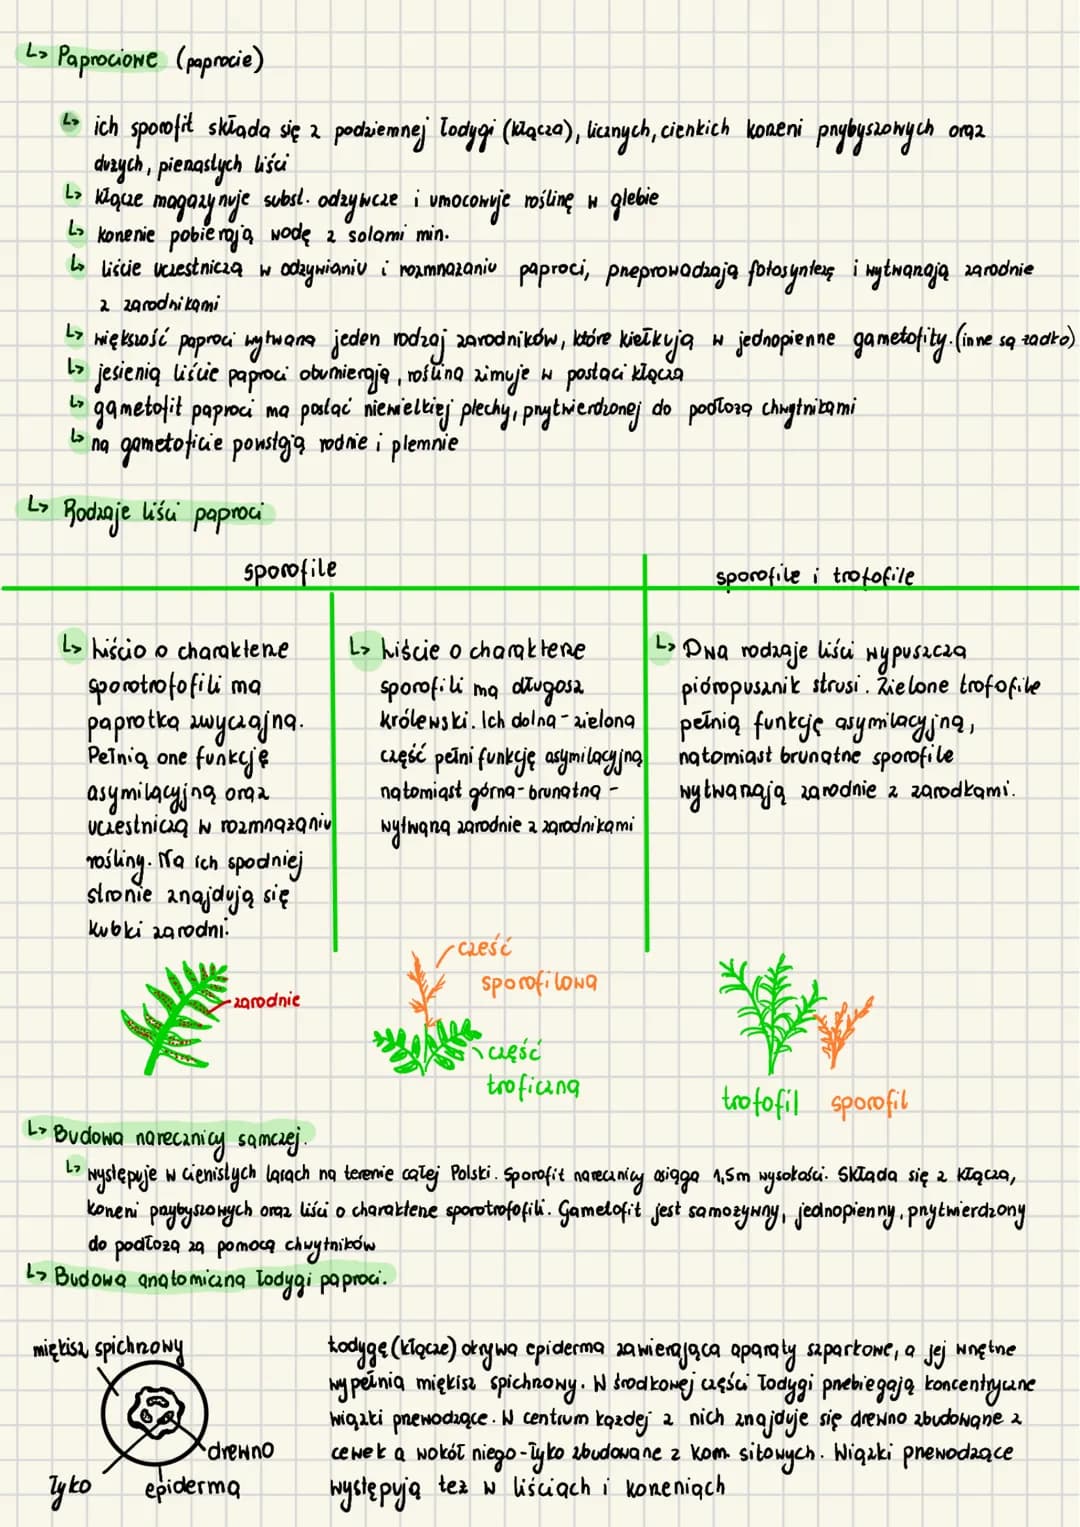 ↳ Paprociowe (paprocie)
↳ ich sporofit składa się z podziemnej łodygi (kłącza), licznych, cienkich korzeni przybyszowych oraz
dużych, pierzastych liści
↳ kłącze magazynuje subst. odżywcze i umocowuje roślinę w glebie
↳ korzenie pobierają wodę z solami min.
↳ liście uczestniczą w odżywianiu i rozmnażaniu paproci, przeprowadzają fotosyntezę i wytwarzają zarodnie
z zarodnikami
↳ większość paproci wytwarza jeden rodzaj zarodników, które kiełkują w jednopienne gametofity. (inne są żadko)
↳ jesienią liście paproci obumierają, roślina zimuje w postaci kłącza
↳ gametofit paproci ma postać niewielkiej plechy, przytwierdzonej do podłoża chwytnikami
↳ na gametoficie powstają rodnie i plemnie
↳ Rodzaje liści paproci
sporofile
sporofile i trofofile
↳ Liścio o charakterze
sporotrofofili ma
paprotka zwyczajna.
Pełnią one funkcję
asymilacyjną oraz
uczestniczą w rozmnażaniu
rośliny. Na ich spodniej
stronie znajdują się
kubki zarodni.
↳ Liście o charakterze
sporofili ma długosz
królewski. Ich dolna - zielona
część pełni funkcję asymilacyjną
natomiast górna - brunatna -
wytwarza zarodnie z zarodnikami
↳ Dwa rodzaje liści wypuszcza
pióropusznik strusi. Zielone trofofile
pełnią funkcję asymilacyjną,
natomiast brunatne sporofile
wytwarzają zarodnie z zarodkami.
zarodnie
cześć
sporofilowa
część
troficzna
trofofil
sporofil
↳ Budowa narecznicy samczej.
↳ występuje w cienistych lasach na terenie całej Polski. Sporofit narecznicy osiąga 1,5m wysokości. Składa się z kłącza,
korzeni przybyszowych oraz liści o charakterze sporotrofofili. Gametofit jest samożywny, jednopienny, przytwierdzony
do podłoża za pomocą chwytników
↳ Budowa anatomiczna łodygi paproci.
miękisz spichrzowy
drewno
łyko
epiderma
Łodygę (kłącze) okrywa epiderma zawierająca aparaty szparkowe, a jej wnętrze
wypełnia miękisz spichrzowy. W środkowej części łodygi przebiegają koncentryczne
wiązki przewodzące. W centrum każdej z nich znajduje się drewno zbudowane z
cewek a wokół niego - łyko zbudowane z kom. sitowych. Wiązki przewodzące
występują też w liściach i korzeniach